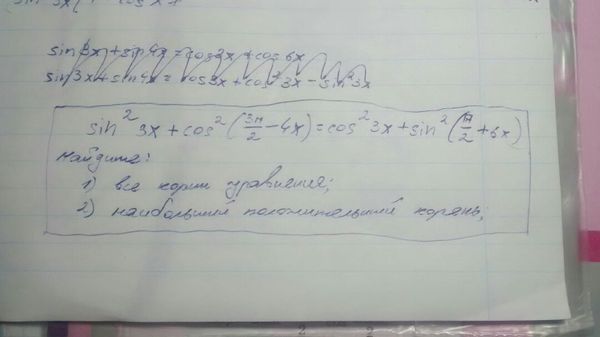 sin 3x + cos x
sin 3x + sin 4x = cos 3x + cos 6x
sin 3x + sin 4x = cos 3x + cos² 3x − sin² 3x
sin² 3x + cos² (3π/2 − 4x) = cos² 3x + sin² (π/2 + 6x)
Найдите:
1) все корни уравнения;
2) наибольший положительный корень;